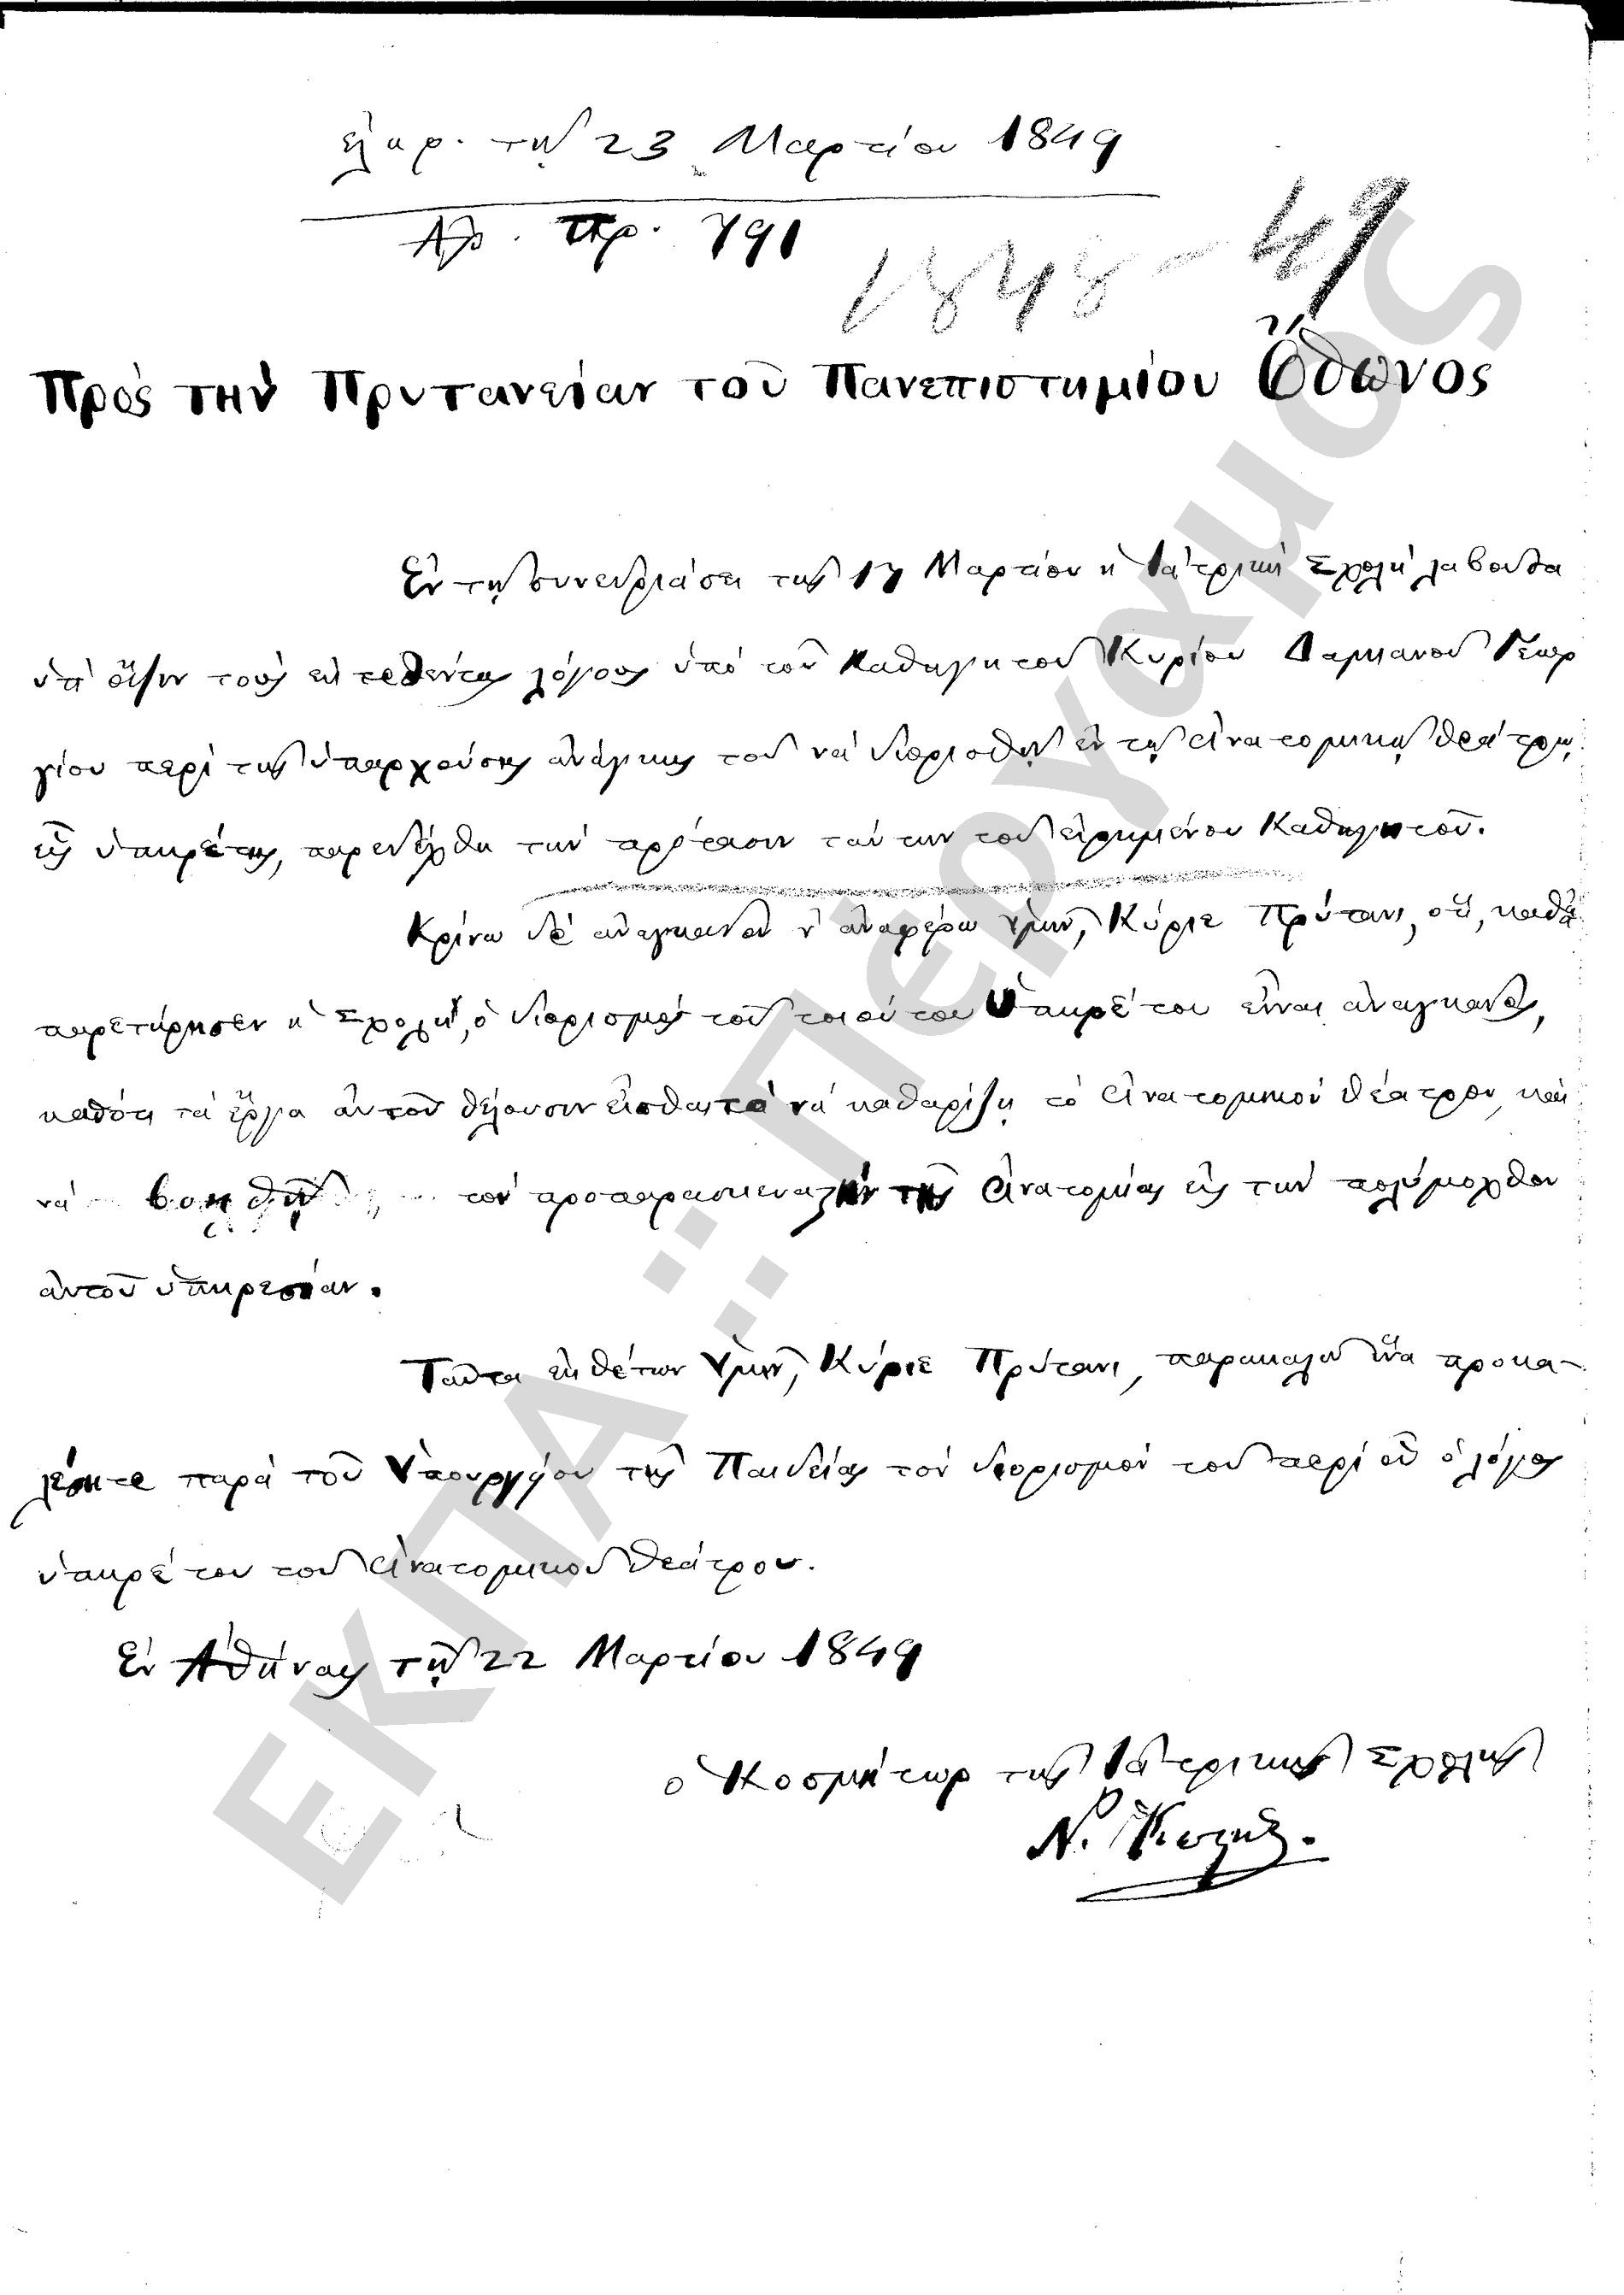 ἐλήφ. τῇ 23 Μαρτίου 1849
Ἀρ. Πρ. 791
1848-49
Πρὸς τὴν Πρυτανείαν τοῦ Πανεπιστημίου Ὄθωνος
Ἐν τῇ συνεδριάσει τῆς 17 Μαρτίου ἡ Ἰατρικὴ Σχολὴ λαβοῦσα
ὑπ' ὄψιν τοὺς ἐκτεθέντας λόγους ὑπὸ τοῦ Καθηγητοῦ Κυρίου Δαμιανοῦ Γεωρ
γίου περὶ τῆς ὑπαρχούσης ἀνάγκης τοῦ νὰ διορισθῇ ἐν τῷ Ἀνατομικῷ θεάτρῳ
εἷς ὑπηρέτης, παρεδέχθη τὴν πρότασιν ταύτην τοῦ εἰρημένου Καθηγητοῦ.
Κρίνω δὲ ἀναγκαῖον ν' ἀναφέρω Ὑμῖν, Κύριε Πρύτανι, ὅτι, καθὰ
παρετήρησεν ἡ Σχολὴ, ὁ διορισμὸς τοῦ τοιούτου ὑπηρέτου εἶναι ἀναγκαῖος,
καθότι τὰ ἔργα αὐτοῦ θέλουσιν εἶσθαι τὸ νὰ καθαρίζῃ τὸ Ἀνατομικὸν θέατρον, καὶ
νὰ βοηθῇ τὸν προπαρασκευαστὴν τῆς Ἀνατομίας εἰς τὴν πολύμοχθον
αὐτοῦ ὑπηρεσίαν.
Ταῦτα ἐκθέτων Ὑμῖν, Κύριε Πρύτανι, παρακαλῶ ἵνα προκα-
λέσητε παρὰ τοῦ Ὑπουργείου τῆς Παιδείας τὸν διορισμὸν τοῦ περὶ οὗ ὁ λόγος
ὑπηρέτου τοῦ Ἀνατομικοῦ θεάτρου.
Ἐν Ἀθήναις τῇ 22 Μαρτίου 1849
ὁ Κοσμήτωρ τῆς Ἰατρικῆς Σχολῆς
Ν. Κωστῆς.
ΕΚΠΑ: Πέργαμος